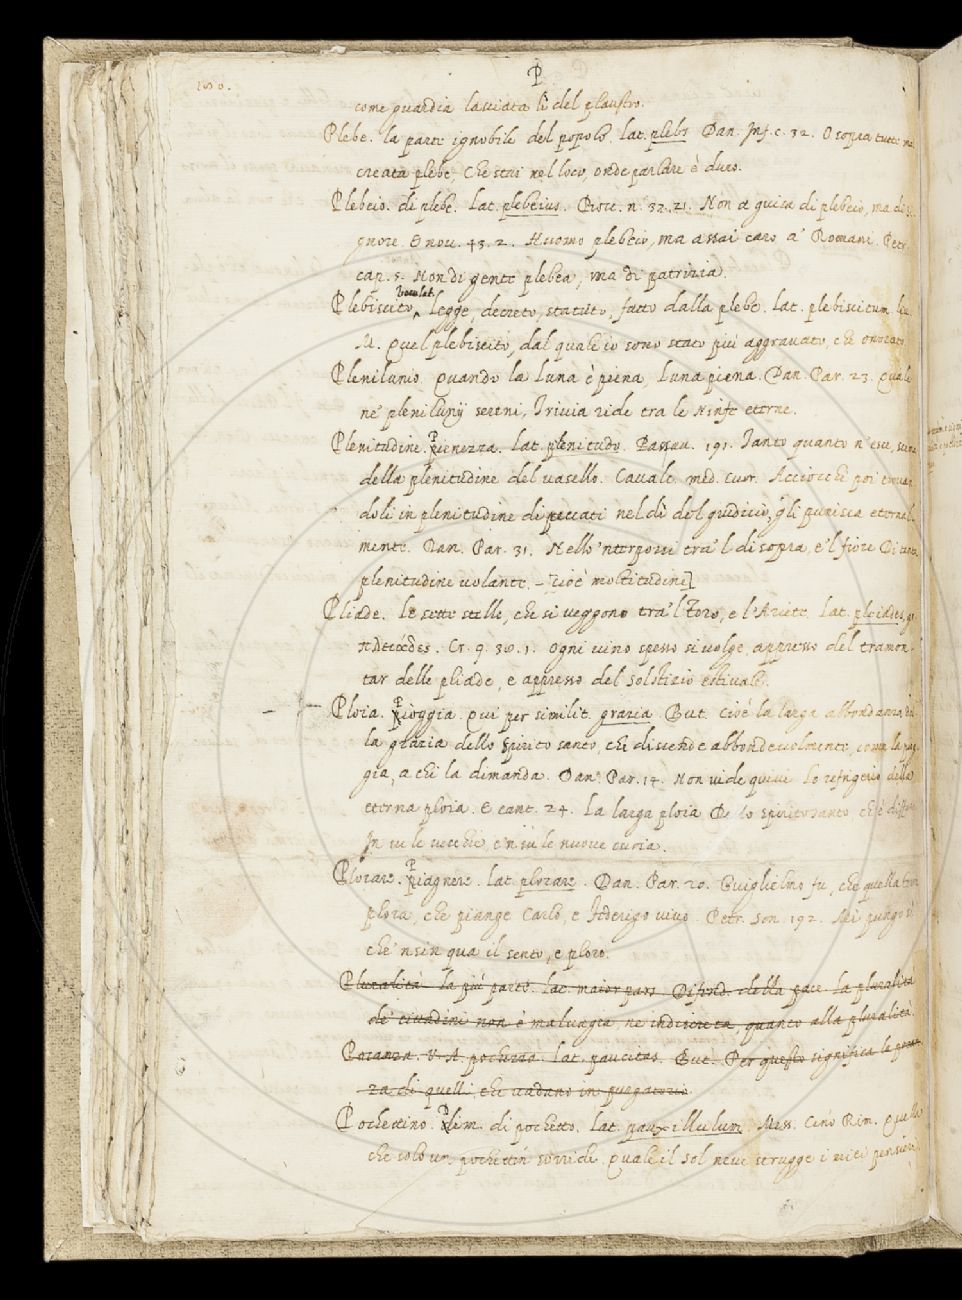 P
come guardia lasciata lì del plaustro.
Plebe. la parte ignobile del popolo. lat. plebs Dan. Inf. c. 32. O sopra tutte
creata plebe, Che stai nel loco, onde parlare è duro.
Plebeio. di plebe. Lat. plebeius. Bocc. n. 32. 21. Non a guisa di plebeio, ma di
gnore. E nou. 43. 2. Huomo plebeio, ma assai caro a' Romani. Petr.
cap. 5. Non di gente plebea, ma di patrizia.
Plebiscito, Legge, decreto, statuto, fatto dalla plebe. Lat. plebiscitum
M. Quel plebiscito, dal quale io sono stato più aggravato, che onorato.
Plenilunio. Quando la Luna è piena, Luna piena. Dan. Par. 23. Quale
ne' plenilunij sereni, Trivia ride tra le Ninfe eterne.
Plenitudine. Pienezza. Lat. plenitudo. Passau. 191. Tanto quanto n'esce, scema
della plenitudine del vasello. Cavalc. med. cuor. Acciocchè poi trovan
doli in plenitudine di peccati nel dì del giudicio, gli punisca eternal
mente. Dan. Par. 31. Nello 'nterporsi tra 'l disopra, e 'l fiore Di tanta
plenitudine volante. - cioè moltitudine]
Pliade. Le sette stelle, che si veggono tra 'l Toro, e l'Ariete. Lat. pleiades, gr.
πλειάδες. Cr. 9. 30. 1. Ogni vino spesso si volge, appresso del tramon-
tar delle pliade, e appresso del solstizio estivale.
Ploia. Pioggia. Qui per similit. grazia. But. Cioè la larga abbondanza del
la grazia dello spirito santo, che discende abbondevolmente, come la piog
gia, a chi la dimanda. Dan. Par. 14. Non vide quivi Lo refrigerio della
eterna ploia. E cant. 24. La larga ploia De lo spirito santo ch'è diffusa
In su le vecchie, e 'n su le nuove cuoia.
Plorare. Piagnere. Lat. plorare. Dan. Par. 20. Guiglielmo fu, che quella terra
plora, che piange Carlo, e Federigo vivo. Petr. Son. 192. Mi pungo sì
che 'nsin qua il sento, e ploro.
Pluralità. la più parte. Lat. maior pars. Difend. della pace. la pluralità
de' cittadini non è malvagia, ne indiscreta, quanto alla pluralità.
Pocanza. V. A. pochezza. Lat. paucitas. But. Per questo significa la pocan
za di quelli, che vadano in purgatorio.
Pochettino. Dim. di pochetto. Lat. pauxillulum. Mess. Cino Rim. Quella
che solo un pochettin sorride, Quale il sol neve strugge i miei pensieri